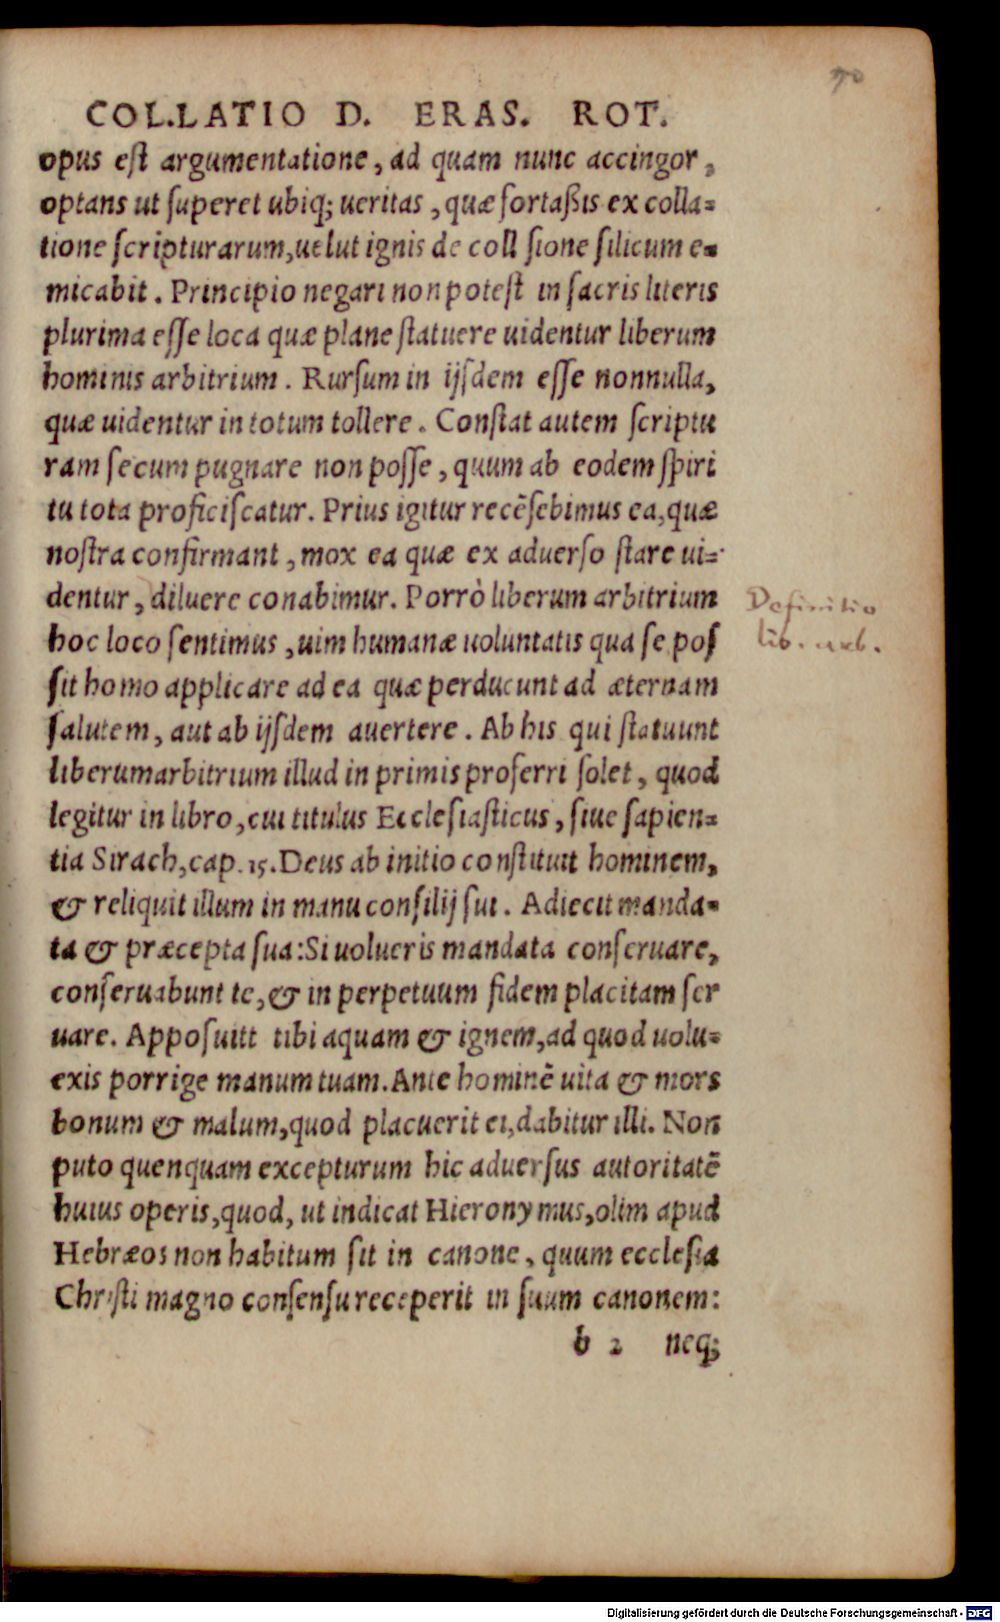 70
COLLATIO D. ERAS. ROT.
opus est argumentatione, ad quam nunc accingor,
optans ut superet ubiq; ueritas, quæ fortaßis ex colla=
tione scripturarum, uelut ignis de coll sione silicum e=
micabit. Principio negari non potest in sacris literis
plurima esse loca quæ plane statuere uidentur liberum
hominis arbitrium. Rursum in ijsdem esse nonnulla,
quæ uidentur in totum tollere. Constat autem scriptu
ram secum pugnare non posse, quum ab eodem spiri
tu tota proficiscatur. Prius igitur recẽsebimus ea, quæ
nostra confirmant, mox ea quæ ex aduerso stare ui=
dentur, diluere conabimur. Porrò liberum arbitrium
hoc loco sentimus, uim humanæ uoluntatis qua se pos
sit homo applicare ad ea quæ perducunt ad æternam
salutem, aut ab ijsdem auertere. Ab his qui statuunt
liberum arbitrium illud in primis proferri solet, quod
legitur in libro, cui titulus Ecclesiasticus, siue sapien=
tia Sirach, cap. 15. Deus ab initio constituit hominem,
& reliquit illum in manu consilij sui. Adiecit manda=
ta & præcepta sua: Si uolueris mandata conseruare,
conseruabunt te, & in perpetuum fidem placitam ser
uare. Apposuitt tibi aquam & ignem, ad quod uolu=
exis porrige manum tuam. Ante hominẽ uita & mors
bonum & malum, quod placuerit ei, dabitur illi. Non
puto quenquam excepturum hic aduersus autoritatẽ
huius operis, quod, ut indicat Hieronymus, olim apud
Hebræos non habitum sit in canone, quum ecclesia
Christi magno consensu receperit in suum canonem:
b 2 neq;
Definitio
lib. arb.
Digitalisierung gefördert durch die Deutsche Forschungsgemeinschaft - DFG